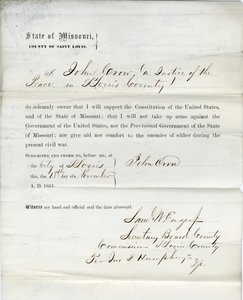 State of Missouri,
COUNTY OF SAINT LOUIS.
I, John Crow, a Justice of the
Peace, in St Louis County
do solemnly swear that I will support the Constitution of the United States,
and of the State of Missouri; that I will not take up arms against the
Government of the United States, nor the Provisional Government of the State of
Missouri; nor give aid nor comfort to the enemies of either during the
present civil war.
SUBSCRIBED AND SWORN TO, before me, at
the City of St Louis
John Crow
this, the day of November
A. D. 1861.
Witness my hand and official seal the date aforesaid.
Saml W
Secretary Board County
Commission St Louis County